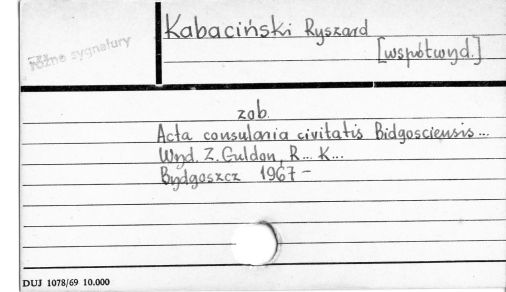 Kabaciński Ryszard
[współwyd.]
różne sygnatury
zob.
Acta consularia civitatis Bidgosciensis...
Wyd. Z. Guldon, R... K...
Bydgoszcz 1967 -
DUJ 1078/69 10.000